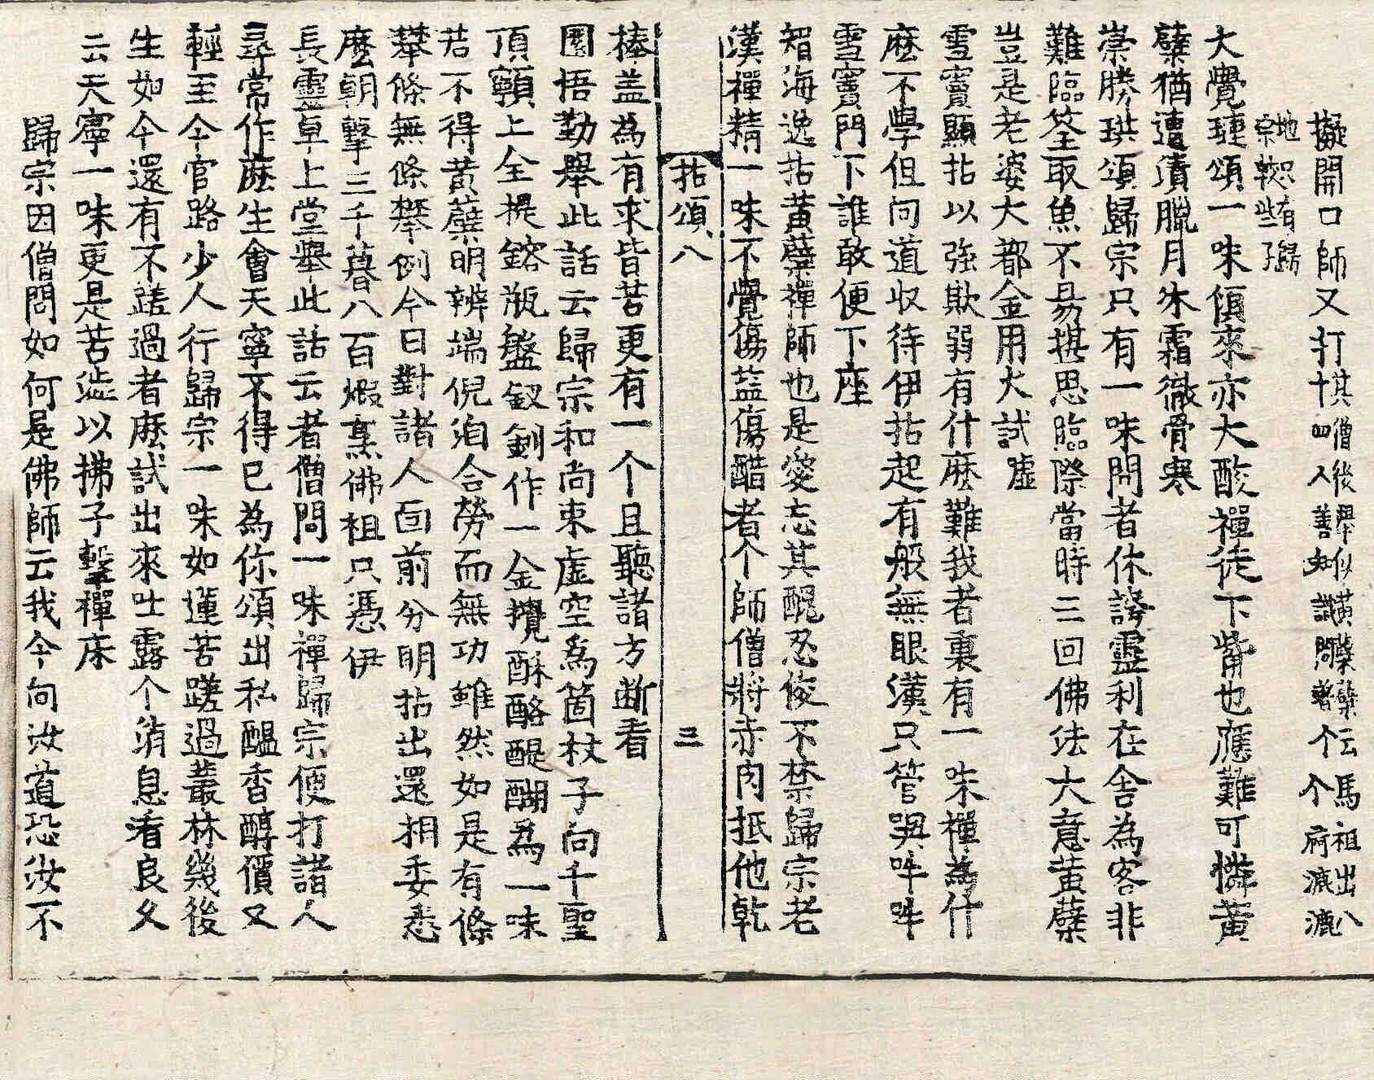 擬開口師又打其僧後舉似黃蘗蘗云馬祖出八
十四人善知識問著个个屙漉漉
地只有歸
宗較些子
大覺璉頌一味傾來亦大酸禪徒下觜也應難可憐黃
蘗猶遭漬臘月朱霜徹骨寒
崇勝珙頌歸宗只有一味開者休誇靈利在舍為客非
難臨筌取魚不易撗思臨際當時三回佛法大意黃蘗
豈是老婆大都金用火試噓
雪竇顯拈以強欺弱有什麽難我者裏有一味禪為什
麽不學但向道收待伊拈起有般無眼漢只管哭吽吽
雪竇門下誰敢便下座
智海逸拈黃蘗禪師也是愛忘其醜忍俊不禁歸宗老
漢禪精一味不覺傷葅傷醋者个師僧將赤肉抵他乾
拈頌八 三
棒盖為有求皆苦更有一个且聽諸方断看
圜悟勤舉此話云歸宗和尚束虛空為箇杖子向千聖
頂𩕳上全提鎔瓶盤釵釧作一金攪酥酪醍醐為一味
若不得黃蘗明辨端倪洎合勞而無功雖然如是有條
攀條無條攀例今日對諸人面前分明拈出還相委悉
麽朝擊三千暮八百煆烹佛祖只憑伊
長靈卓上堂舉此話云者僧問一味禪歸宗便打諸人
尋常作麽生會天寧不得已為你頌出私醞香醇價又
輕至今官路少人行歸宗一味如蓮苦蹉過叢林幾後
生如今還有不蹉過者麽試出來吐露个消息看良久
云天寧一味更是苦澁以拂子擊禪床
歸宗因僧問如何是佛師云我今向汝道恐汝不